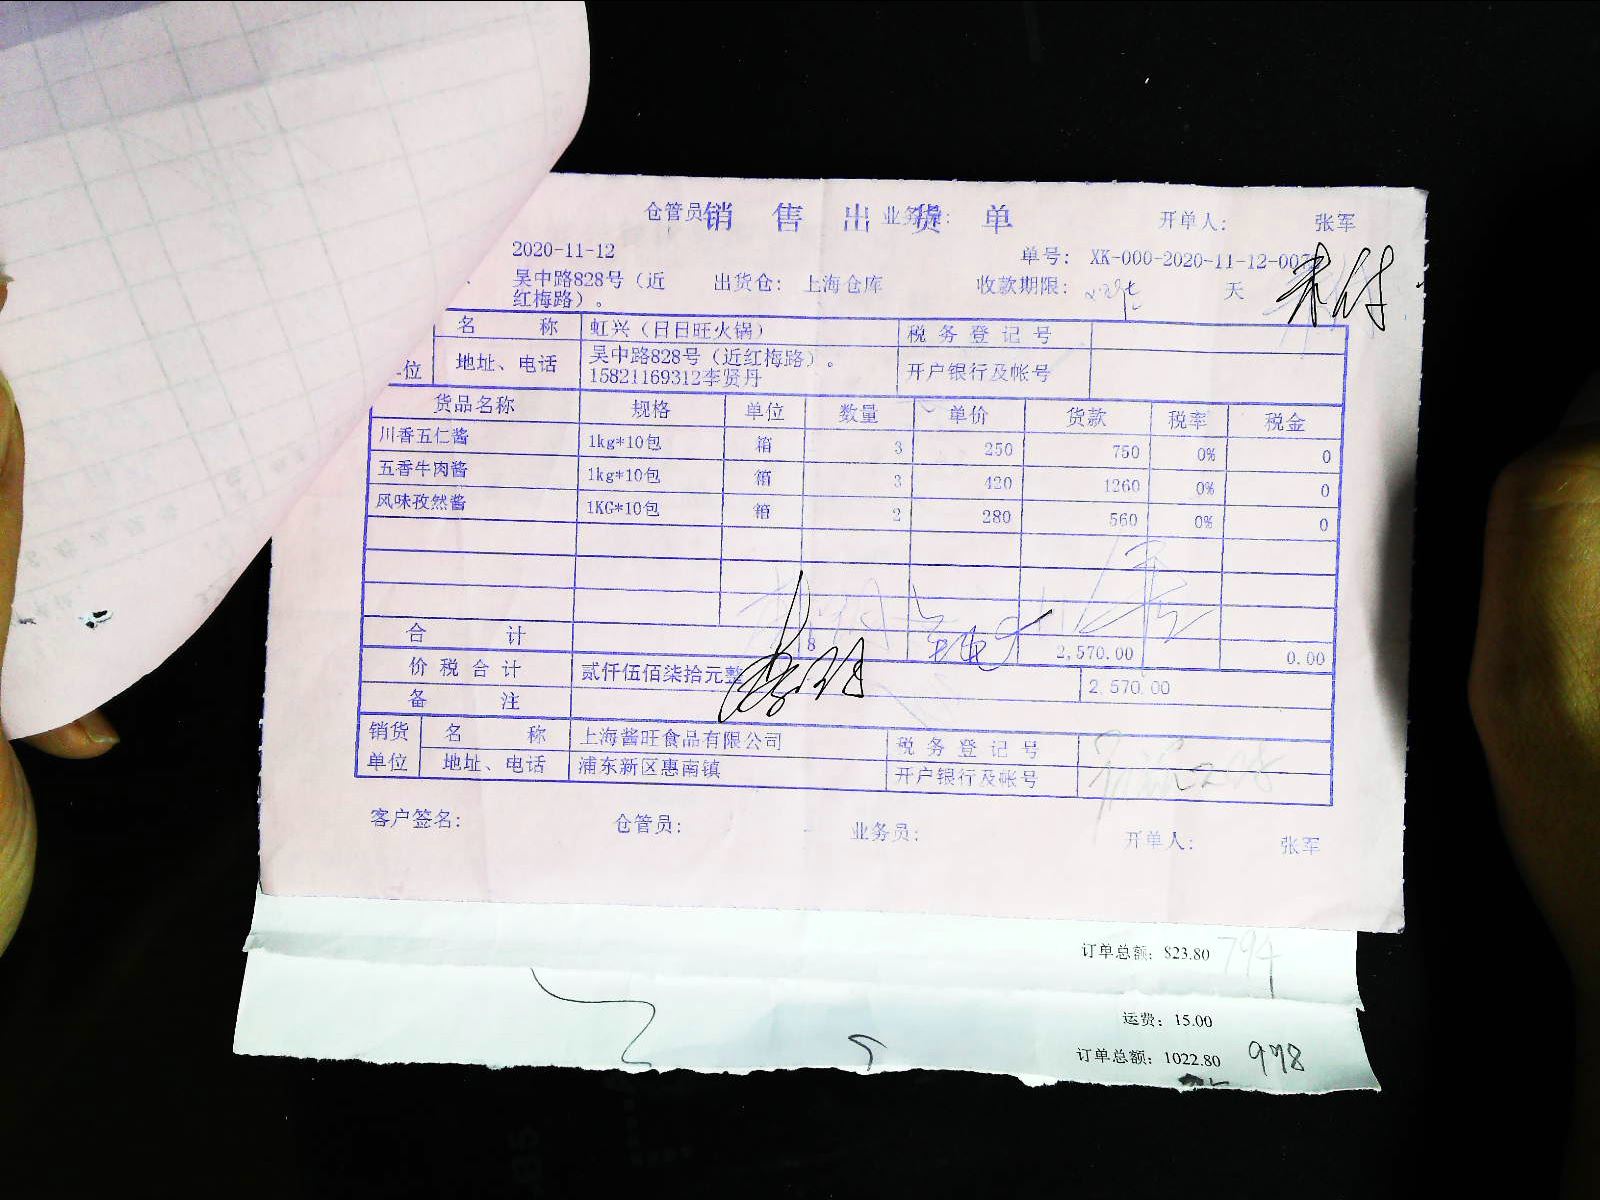 仓管员 销售出货单 业务员: 开单人: 张军
2020-11-12 单号: XK-000-2020-11-12-007
吴中路828号（近红梅路）。 出货仓: 上海仓库 收款期限: 天 未付
名 称 虹兴（日日旺火锅） 税务登记号
位 地址、电话 吴中路828号（近红梅路）。 开户银行及帐号
15821169312李贤丹
货品名称 规格 单位 数量 单价 货款 税率 税金
川香五仁酱 1kg*10包 箱 3 250 750 0% 0
五香牛肉酱 1kg*10包 箱 3 420 1260 0% 0
风味孜然酱 1KG*10包 箱 2 280 560 0% 0
合 计 8 2,570.00 0.00
价税合计 贰仟伍佰柒拾元整 2,570.00
备 注
销货单位 名 称 上海酱旺食品有限公司 税务登记号
地址、电话 浦东新区惠南镇 开户银行及帐号
客户签名: 仓管员: 业务员: 开单人: 张军
订单总额: 823.80 794
运费: 15.00
订单总额: 1022.80 978